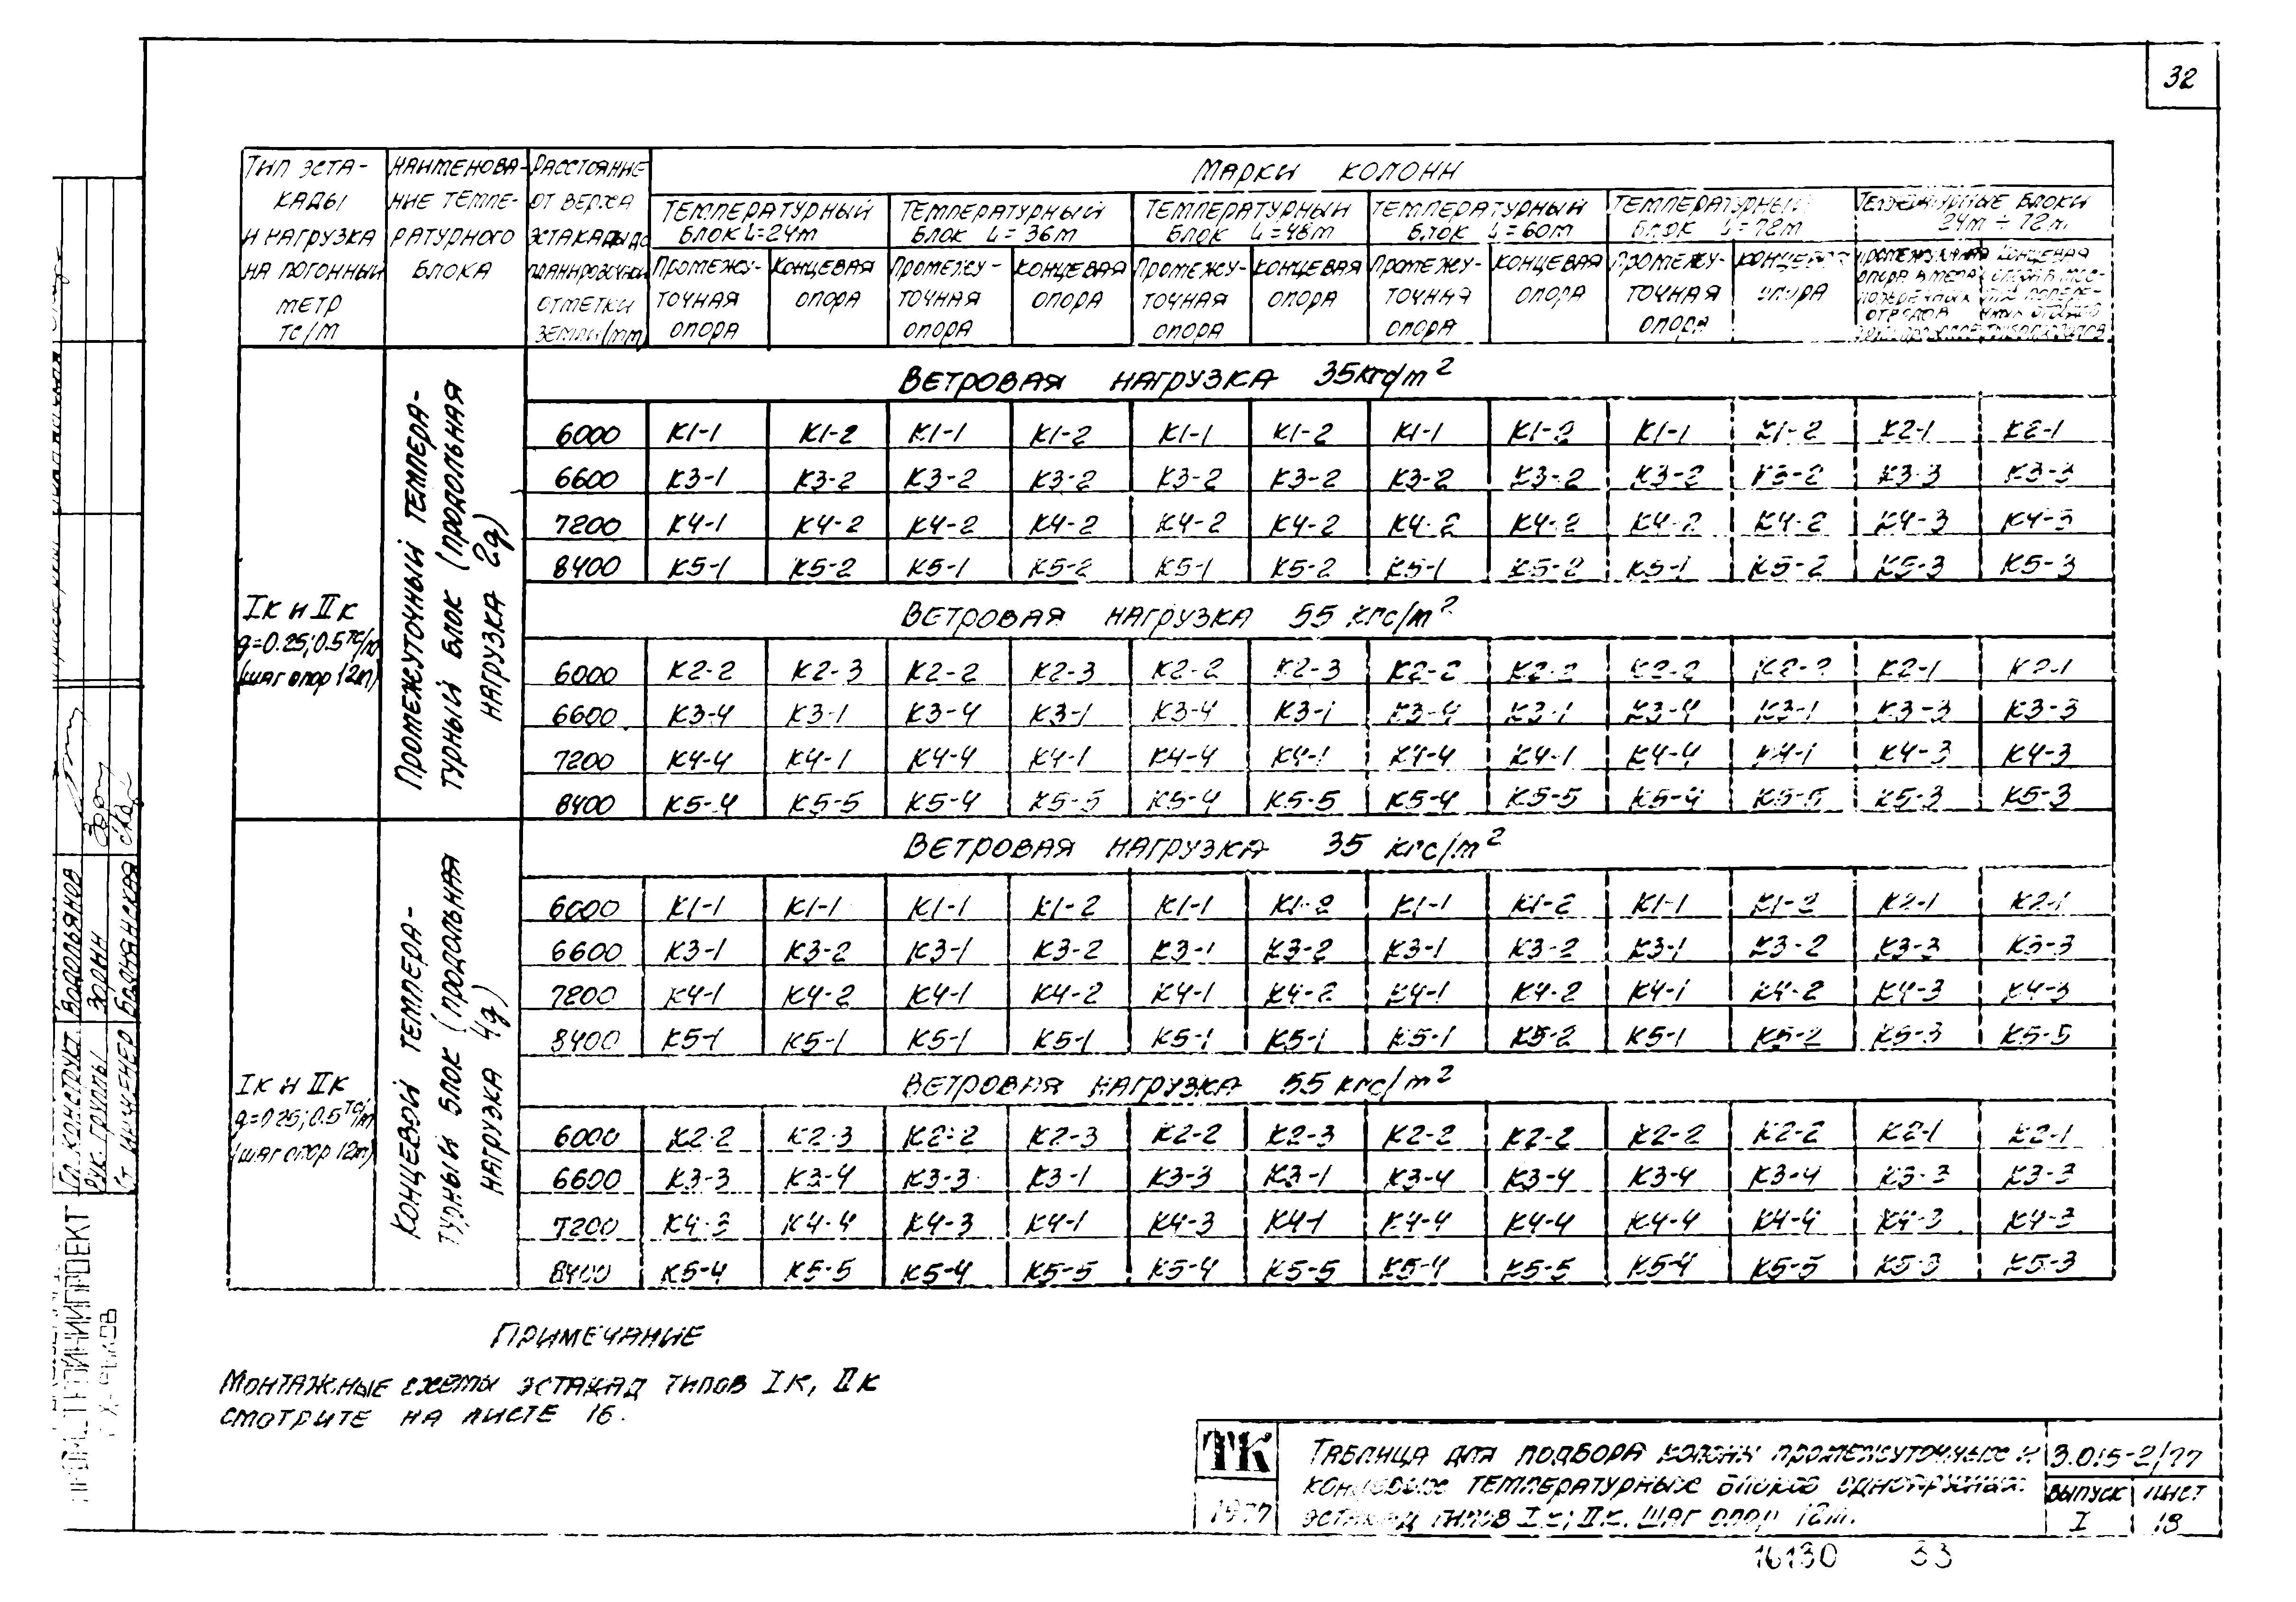 32
Тип эста-
кады
и нагрузка
на погонный
метр
тс/м
Наименова-
ние темпе-
ратурного
блока
Расстояние
от верха
эстакады до
планировочной
отметки
земли (mm)
Марки колонн
Температурный
блок L=24m
Температурный
блок L=36m
Температурный
блок L=48m
Температурный
блок L=60m
Температурный
блок L=72m
Температурные блоки
24m ÷ 72m
Промежу-
точная
опора
Концевая
опора
Промежу-
точная
опора
Концевая
опора
Промежу-
точная
опора
Концевая
опора
Промежу-
точная
опора
Концевая
опора
Промежу-
точная
опора
Концевая
опора
Промежуточная
опора в
поперечных
отводов
Концевая
опора в
попере-
Iк и IIк
q=0.25; 0.5 тс/м
(шаг опор 12m)
Промежуточный темпера-
турный блок (продольная
нагрузка 2q)
Ветровая нагрузка 35кгс/m²
6000 К1-1 К1-2 К1-1 К1-2 К1-1 К1-2 К1-1 К1-2 К1-1 К1-2 К2-1 К2-1
6600 К3-1 К3-2 К3-2 К3-2 К3-2 К3-2 К3-2 К3-2 К3-2 К3-2 К3-3 К3-3
7200 К4-1 К4-2 К4-2 К4-2 К4-2 К4-2 К4-2 К4-2 К4-2 К4-2 К4-3 К4-3
8400 К5-1 К5-2 К5-1 К5-2 К5-1 К5-2 К5-1 К5-2 К5-1 К5-2 К5-3 К5-3
Ветровая нагрузка 55 кгс/m²
6000 К2-2 К2-3 К2-2 К2-3 К2-2 К2-3 К2-2 К2-2 К2-2 К2-2 К2-1 К2-1
6600 К3-4 К3-1 К3-4 К3-1 К3-4 К3-1 К3-4 К3-1 К3-4 К3-1 К3-3 К3-3
7200 К4-4 К4-1 К4-4 К4-1 К4-4 К4-1 К4-4 К4-1 К4-4 К4-1 К4-3 К4-3
8400 К5-4 К5-5 К5-4 К5-5 К5-4 К5-5 К5-4 К5-5 К5-4 К5-5 К5-3 К5-3
Iк и IIк
q=0.25; 0.5 тс/m
(шаг опор 12m)
Концевой темпера-
турный блок (продольная
нагрузка 4q)
Ветровая нагрузка 35 кгс/m²
6000 К1-1 К1-1 К1-1 К1-2 К1-1 К1-2 К1-1 К1-2 К1-1 К1-2 К2-1 К2-1
6600 К3-1 К3-2 К3-1 К3-2 К3-1 К3-2 К3-1 К3-2 К3-1 К3-2 К3-3 К3-3
7200 К4-1 К4-2 К4-1 К4-2 К4-1 К4-2 К4-1 К4-2 К4-1 К4-2 К4-3 К4-3
8400 К5-1 К5-1 К5-1 К5-1 К5-1 К5-1 К5-1 К5-2 К5-1 К5-2 К5-3 К5-3
Ветровая нагрузка 55 кгс/m²
6000 К2-2 К2-3 К2-2 К2-3 К2-2 К2-3 К2-2 К2-2 К2-2 К2-2 К2-1 К2-1
6600 К3-3 К3-4 К3-3 К3-1 К3-3 К3-1 К3-4 К3-4 К3-4 К3-4 К3-3 К3-3
7200 К4-3 К4-4 К4-3 К4-1 К4-3 К4-1 К4-4 К4-4 К4-4 К4-4 К4-3 К4-3
8400 К5-4 К5-5 К5-4 К5-5 К5-4 К5-5 К5-4 К5-5 К5-4 К5-5 К5-3 К5-3
Примечание
Монтажные схемы эстакад типов Iк, IIк
смотрите на листе 16.
Гл. конструкт. Водопьянов
Рук. группы Зорин
Ст. инженер
ПРОМСТРОЙНИИПРОЕКТ
г. Харьков
ТК
1977
Таблица для подбора колонн промежуточных и
концевых температурных блоков одноярусных
эстакад типов Iк; IIк. Шаг опор 12m.
3.015-2/77
Выпуск
I
Лист
18
16130 33